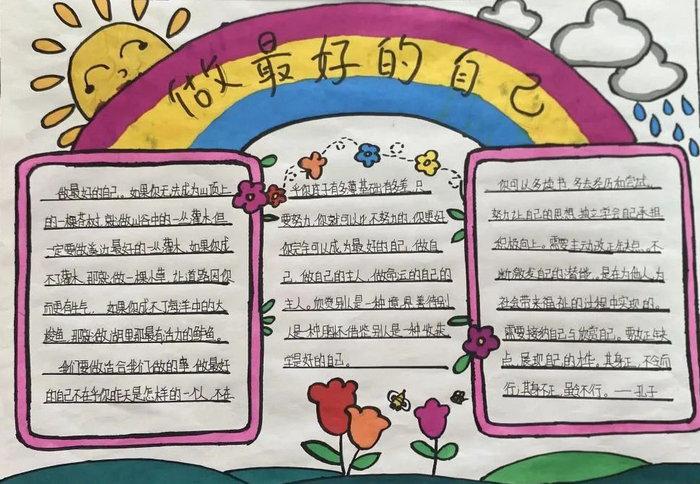 做最好的自己
做最好的自己。如果你无法成为山顶上
的一棵苍松就做山谷中的一丛灌木但
一定要做溪边最好的一丛灌木如果你成
不了灌木那就做一棵小草让道路因你
而更有生气。如果你成不了海洋中的大
梭鱼那就做湖里那最有活力的鲈鱼。
我们要做适合我们做的事做最好
的自己不在乎你昨天是怎样的一个人不在
乎你孩子有多薄基础有多差只
要努力你就可以比不努力的你更好
你完全可以成为最好的自己,做自
己,做自己的主人,做命运的自己的
主人。如爱别人是一种境界善待别
人是一种胸怀借鉴别人是一种收获
是最好的自己。
你可以多读书,多去参历和尝试。
努力让自己的思想独立学会自己承担
积极向上。需要主动改正缺点,不
断激发自己的潜能。是在为他人为
社会带来福祉的过程中实现的。
需要接纳自己与欣赏自己。要改正缺
点,展现自己的才华。其身正,不令而
行;其身不正,虽令不行。——孔子